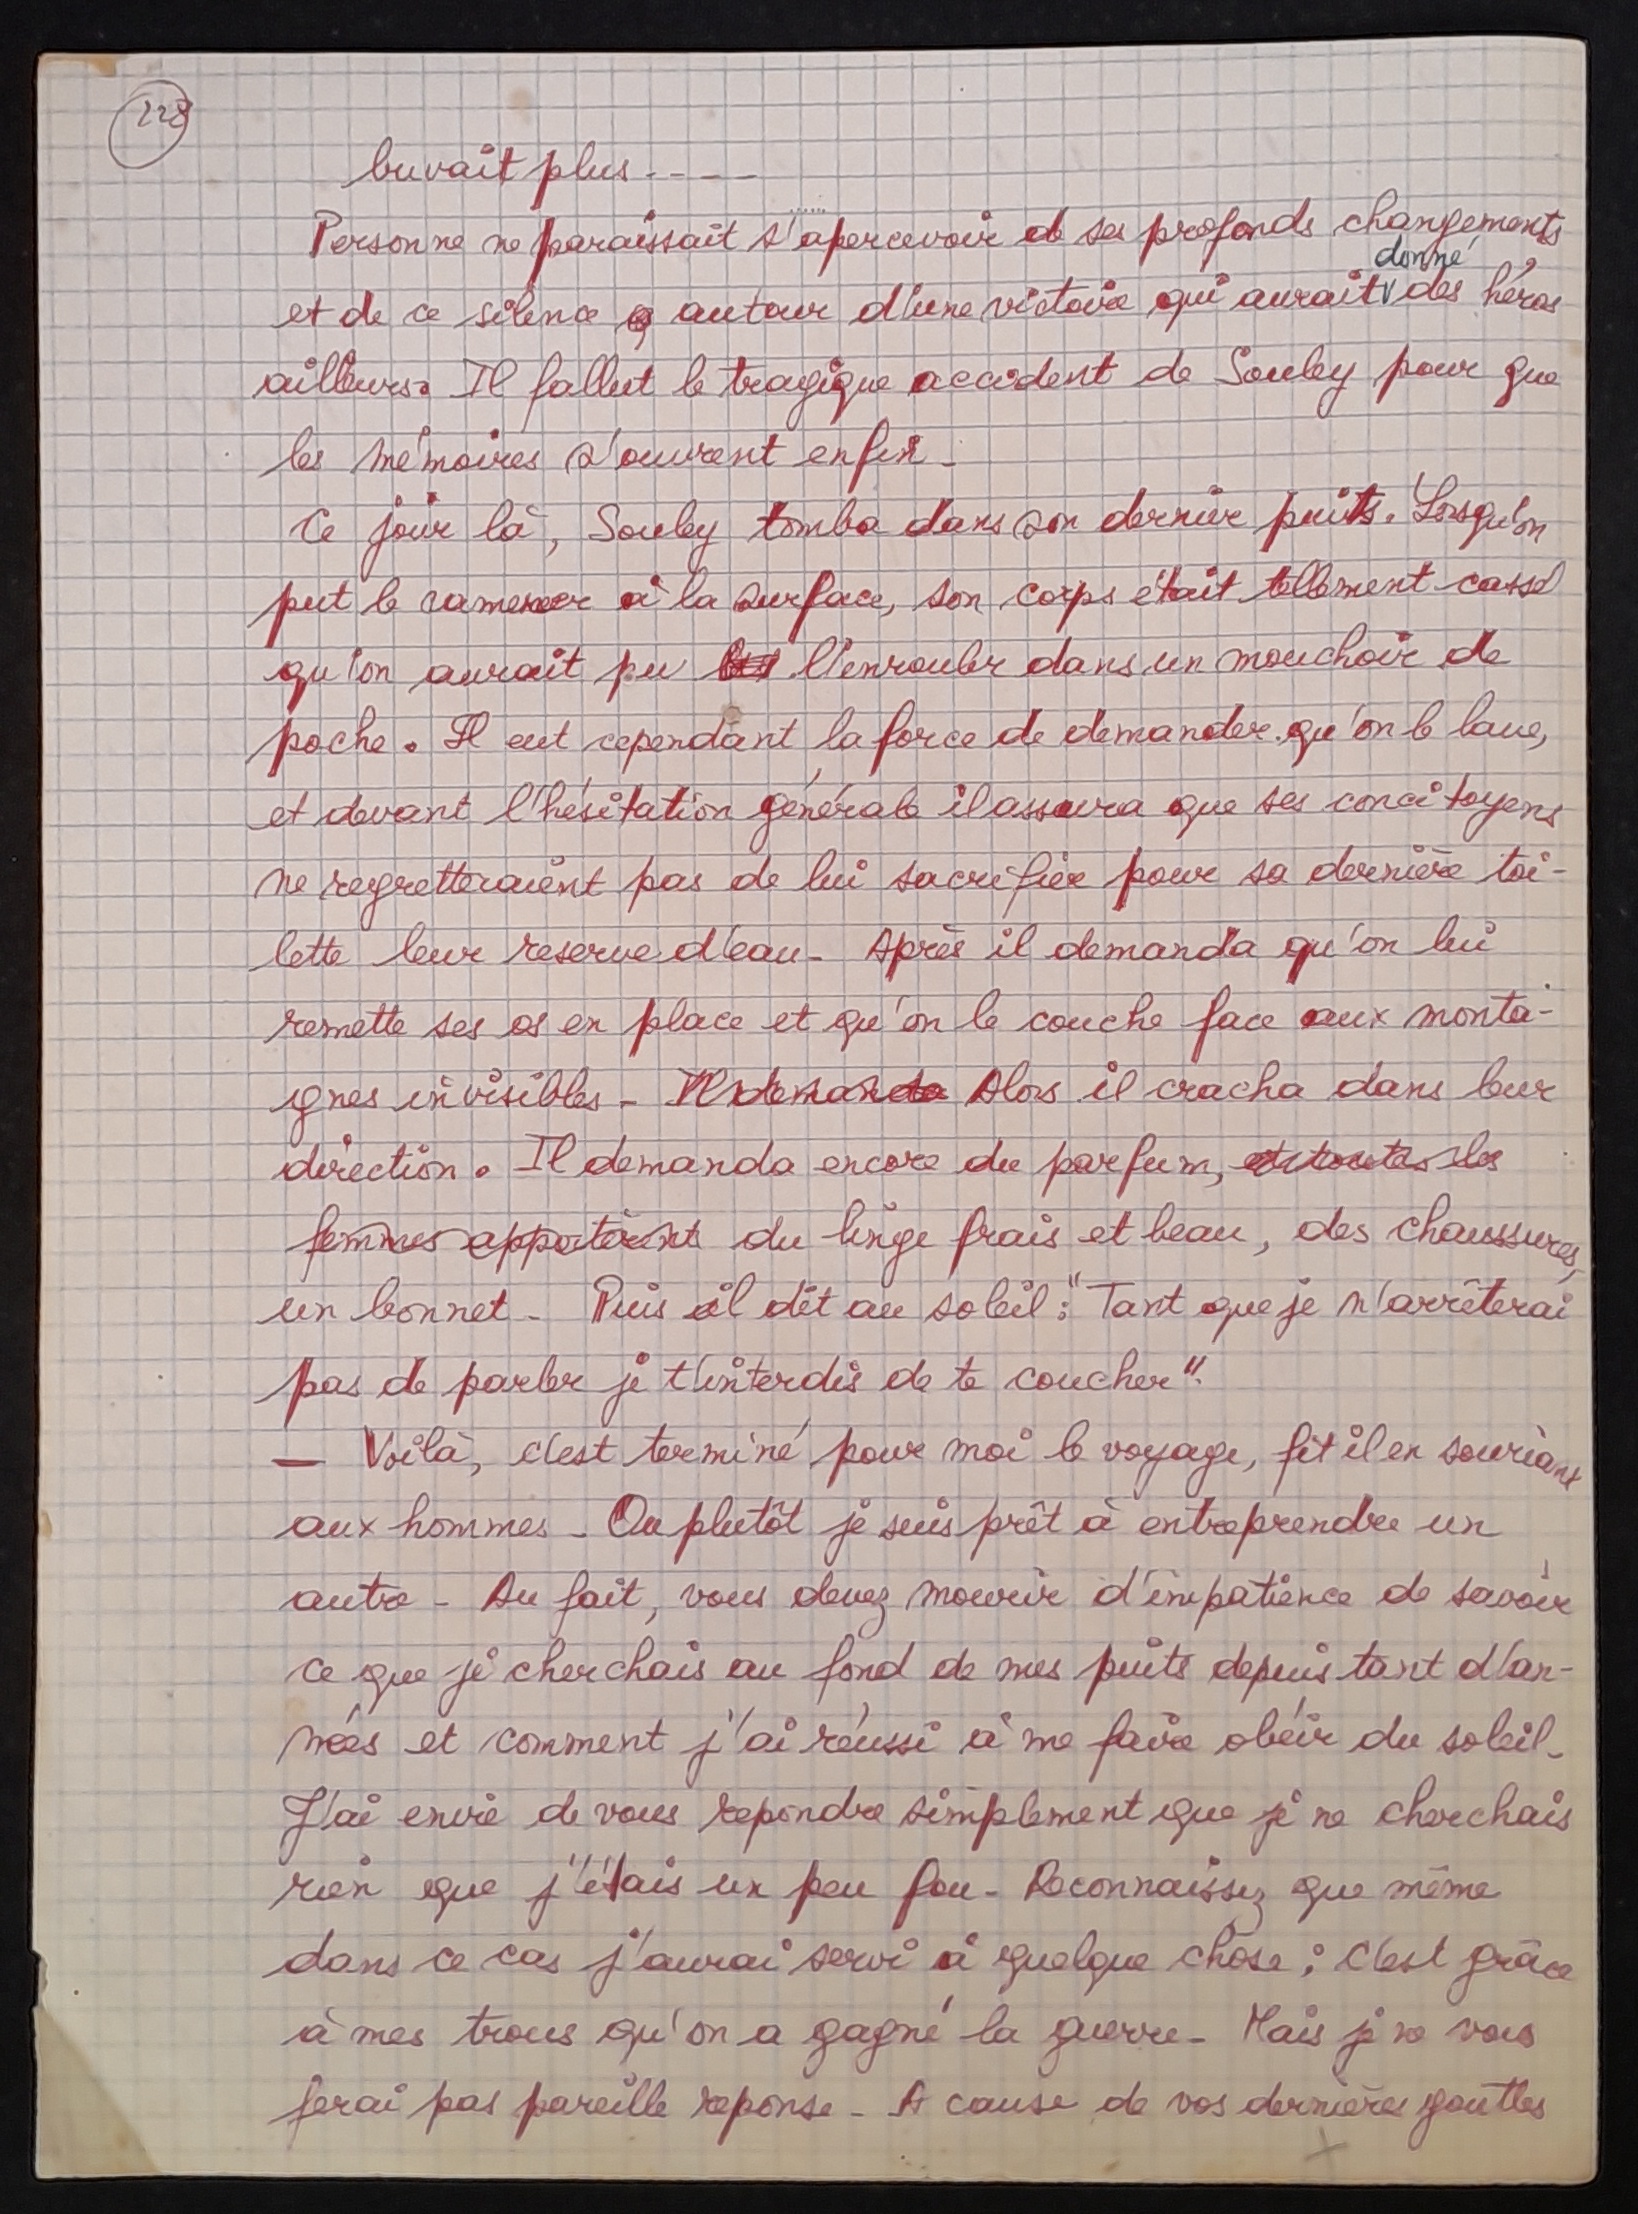 228
buvait plus ----
Personne ne paraissait s'apercevoir de ses profonds changements
donné
et de ce silence autour d'une victoire qui aurait v des héros
ailleurs. Il fallut le tragique accident de Souley pour que
les mémoires s'ouvrent enfin -
Ce jour là, Souley tomba dans son dernier puits. Lorsqu'on
put le ramener à la surface, son corps était tellement cassé
qu'on aurait pu l'enrouler dans un mouchoir de
poche. Il eut cependant la force de demander qu'on le lave,
et devant l'hésitation générale il assura que ses concitoyens
ne regretteraient pas de lui sacrifier pour sa dernière toi-
lette leur reserve d'eau - Après il demanda qu'on lui
remette ses os en place et qu'on le couche face aux monta-
gnes invisibles - Il demanda Alors il cracha dans leur
direction. Il demanda encore du parfum, et toutes les
femmes apportèrent du linge frais et beau, des chaussures,
un bonnet - Puis il dit au soleil : "Tant que je n'arrêterai
pas de parler je t'interdis de te coucher".
— Voilà, c'est terminé pour moi le voyage, fit il en souriant
aux hommes - Ou plutôt je suis prêt à entreprendre un
autre - Au fait, vous devez mourir d'impatience de savoir
ce que je cherchais au fond de mes puits depuis tant d'an-
nées et comment j'ai réussi à me faire obéir du soleil -
J'ai envie de vous repondre simplement que je ne cherchais
rien que j'étais un peu fou - Reconnaissez que même
dans ce cas j'aurai servi à quelque chose ; c'est grâce
à mes trous qu'on a gagné la guerre - Mais je ne vous
ferai pas pareille reponse - A cause de vos dernières gouttes